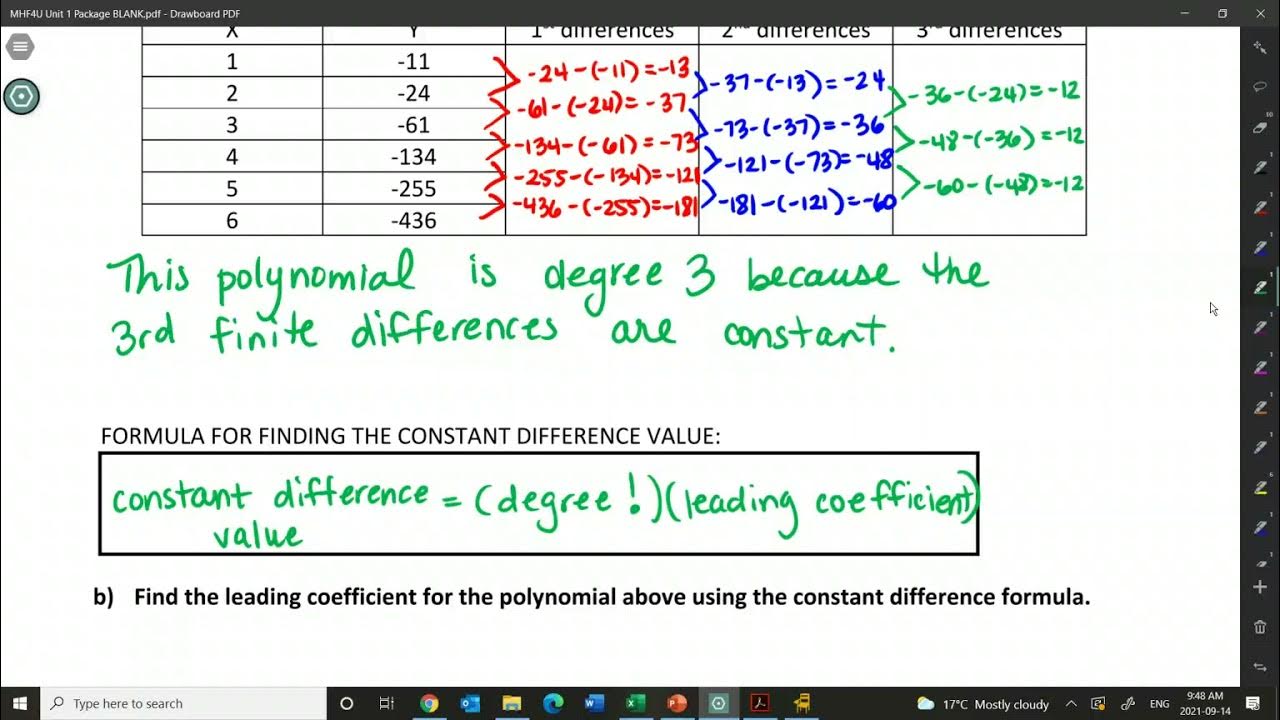 MHF4U Unit 1 Package BLANK.pdf - Drawboard PDF
X Y 1st differences 2nd differences 3rd differences
1 -11
-24-(-11)=-13
2 -24
-37-(-13)=-24
-61-(-24)=-37
-36-(-24)=-12
3 -61
-73-(-37)=-36
-134-(-61)=-73
-48-(-36)=-12
4 -134
-121-(-73)=-48
-255-(-134)=-121
-60-(-48)=-12
5 -255
-181-(-121)=-60
-436-(-255)=-181
6 -436
This polynomial is degree 3 because the
3rd finite differences are constant.
FORMULA FOR FINDING THE CONSTANT DIFFERENCE VALUE:
constant difference = (degree!)(leading coefficient)
value
b) Find the leading coefficient for the polynomial above using the constant difference formula.
Type here to search
17°C Mostly cloudy
ENG
9:48 AM
2021-09-14